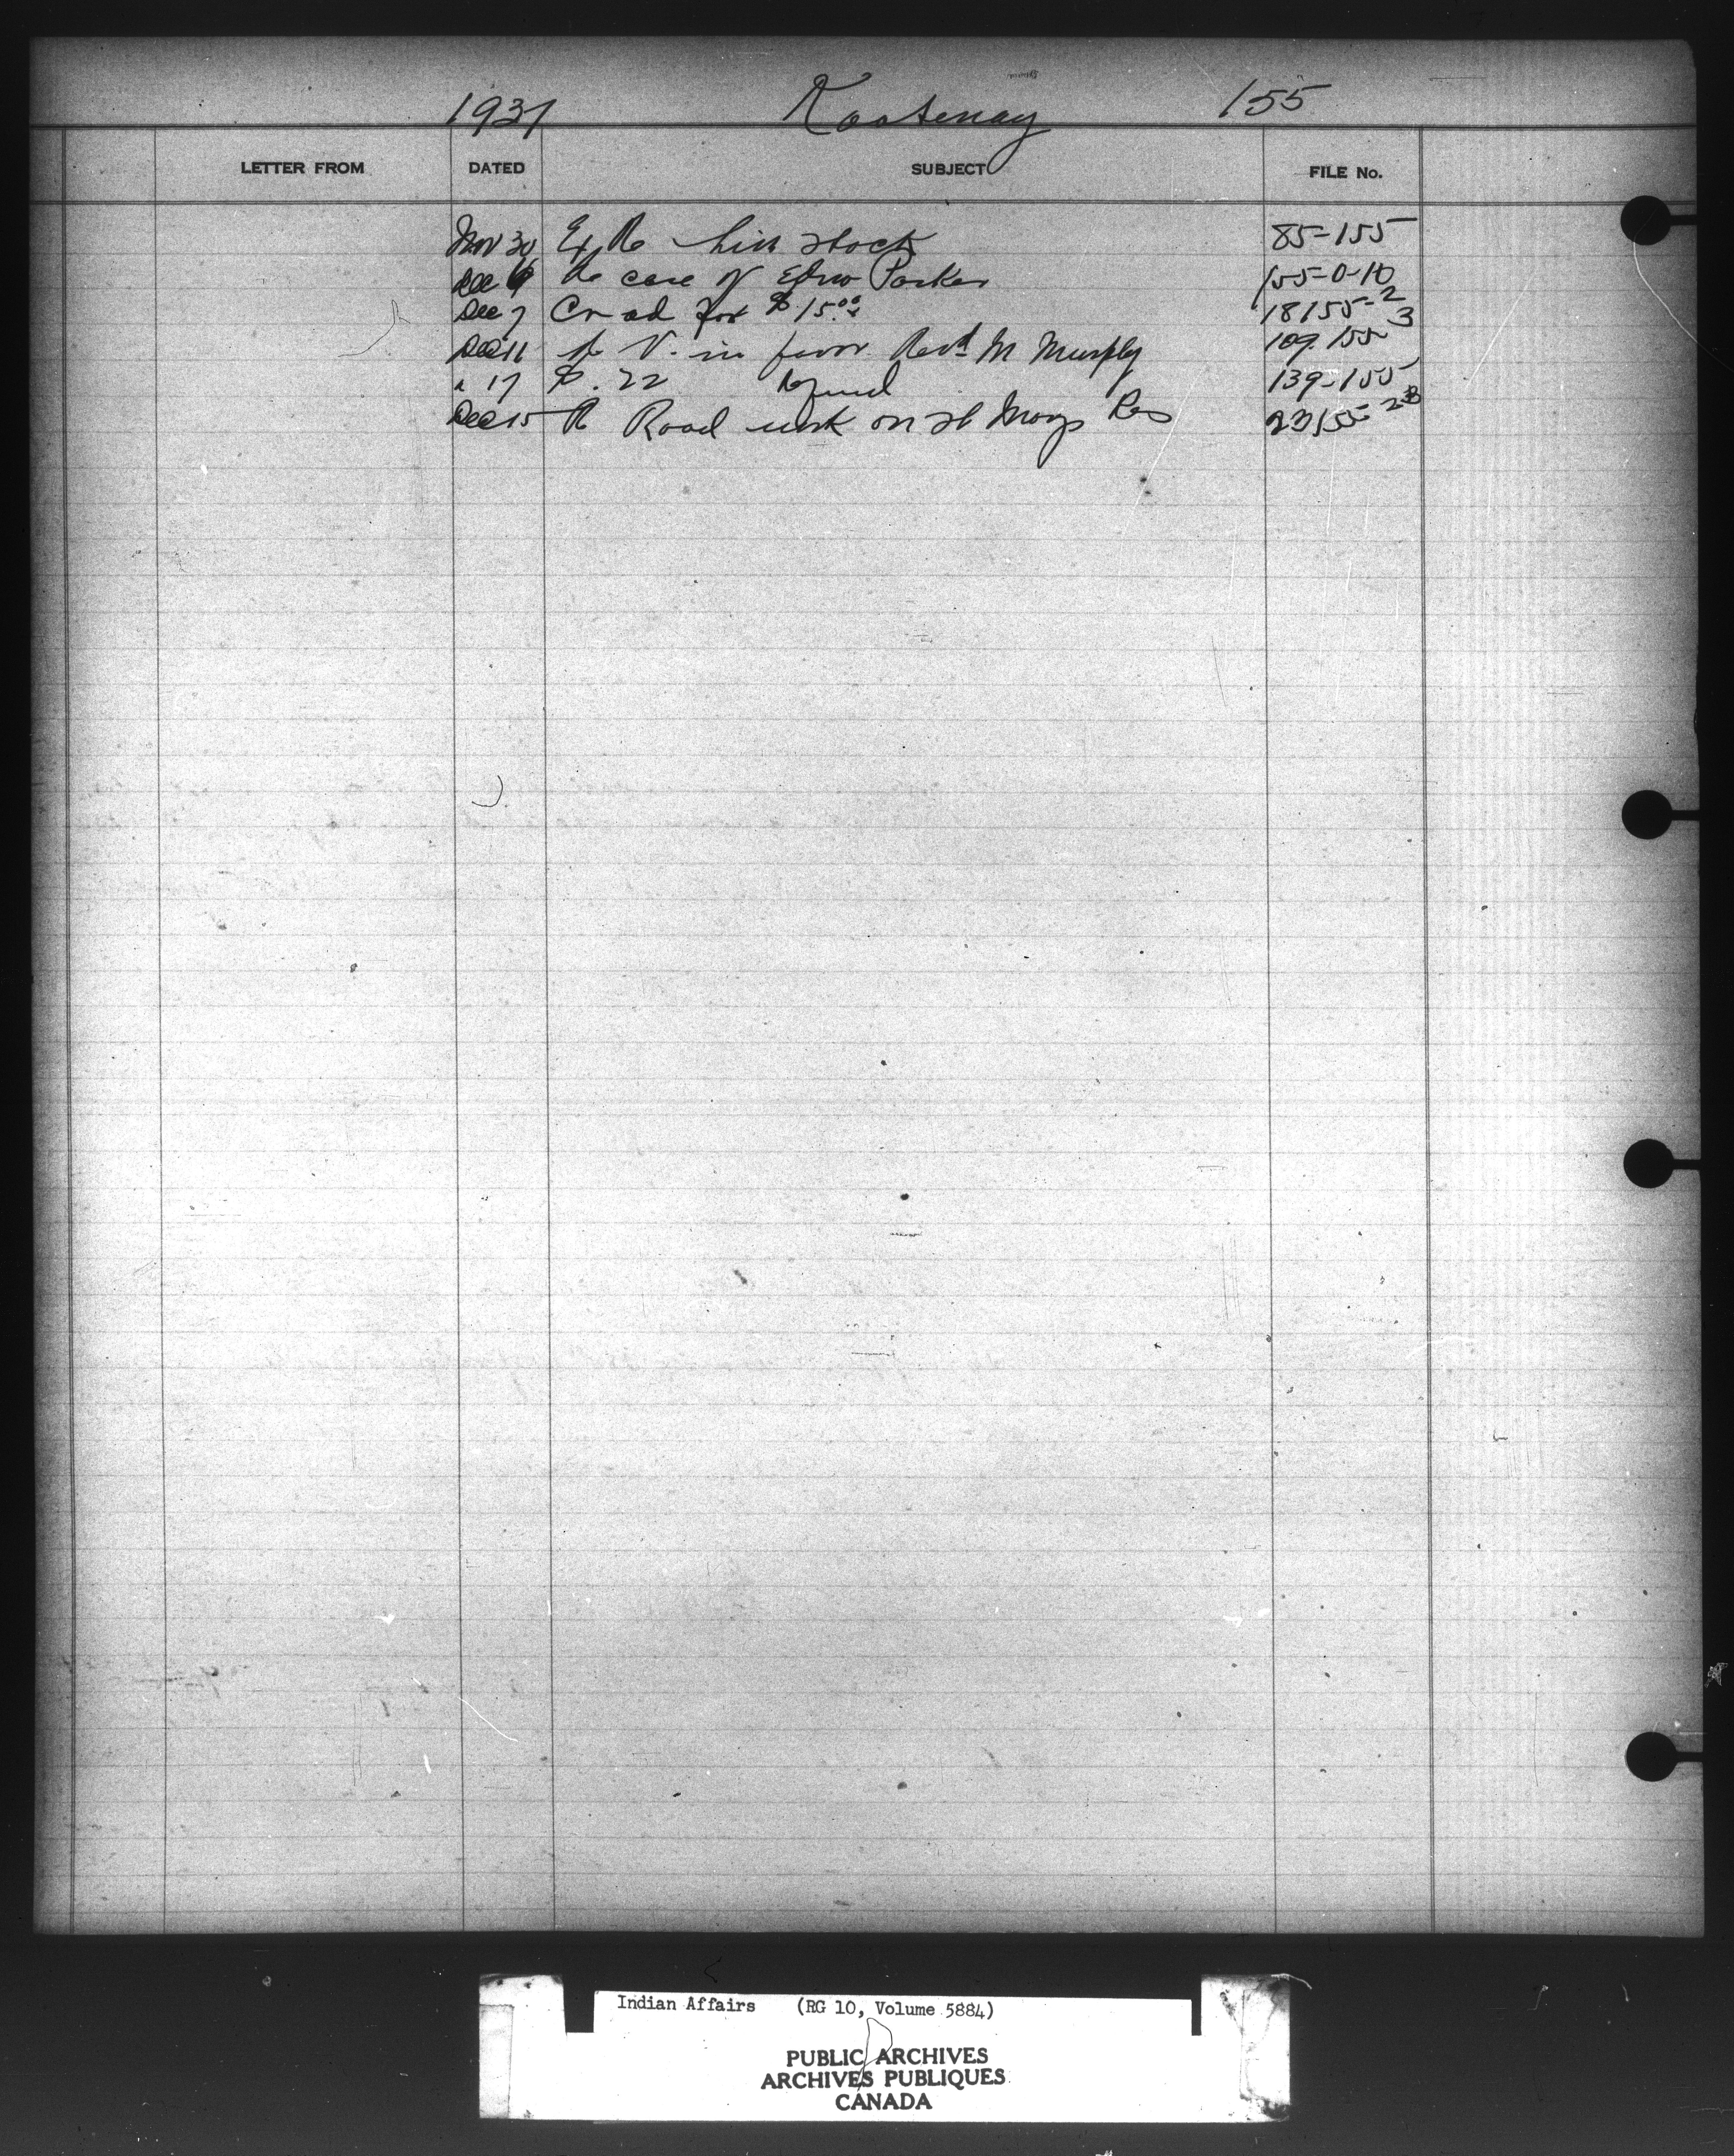 1931 Kootenay 155
LETTER FROM DATED SUBJECT FILE No.
Nov 30 Ex Re live stock 85-155
Dec Re case of Parker 155-0-10
Dec 7 Cr ad for $15.00 18155-2
Dec 11 V. in favor Revd M Murphy 109-155 3
" 17 $.22 Refund 139-155
Dec 15 Re Road work on St Marys Res 23155-
Indian Affairs (RG 10, Volume 5884)
PUBLIC ARCHIVES
ARCHIVES PUBLIQUES
CANADA